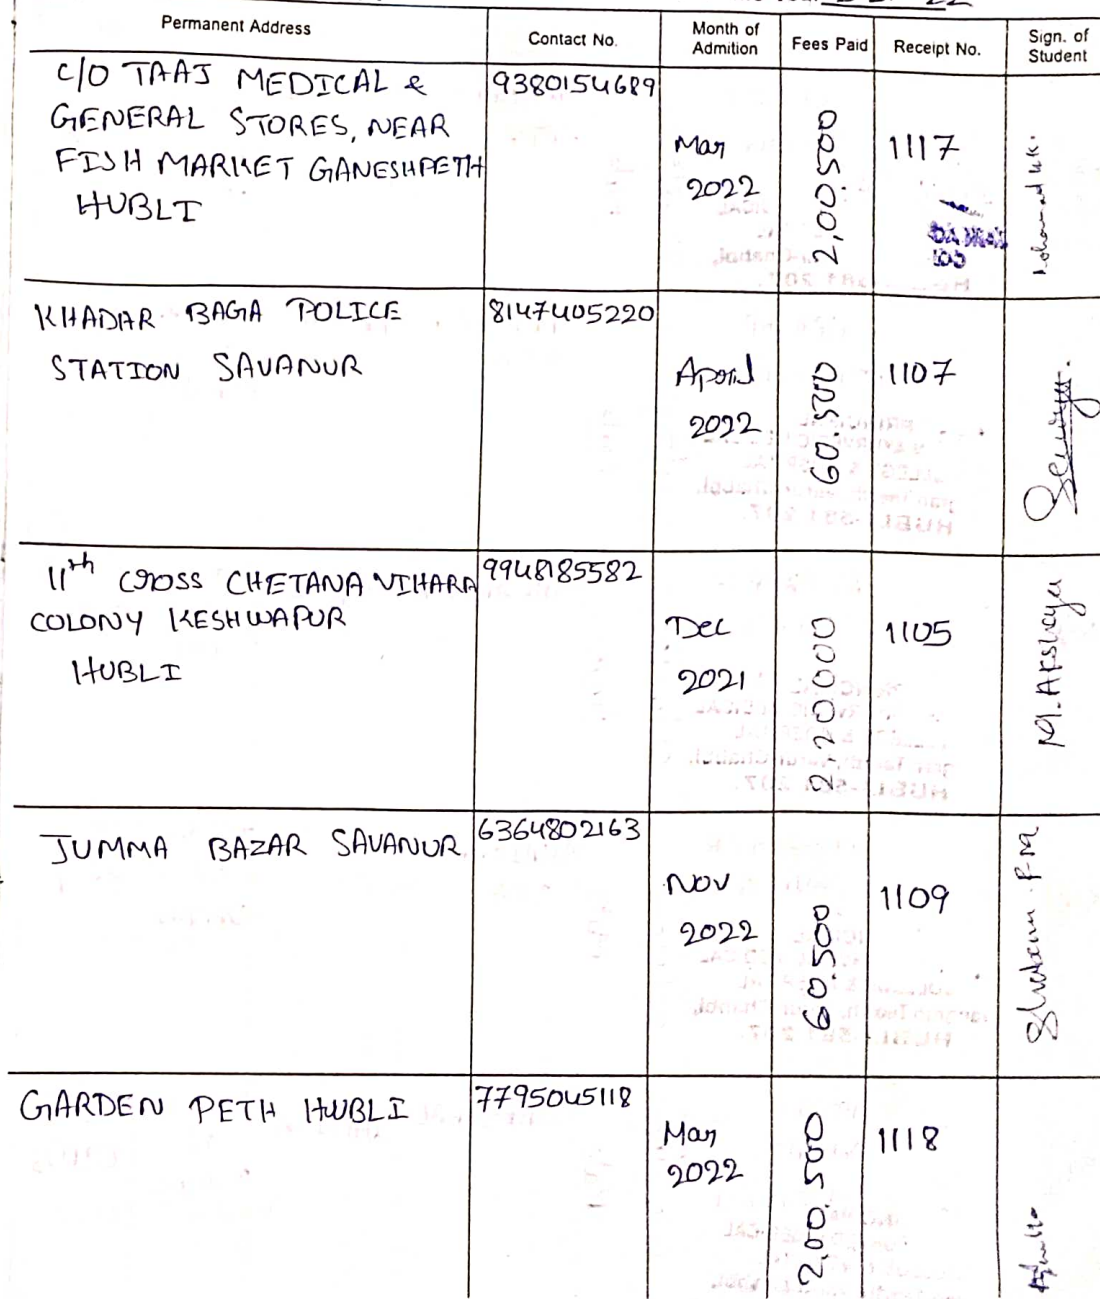 Permanent Address Contact No. Month of Admition Fees Paid Receipt No. Sign. of Student
C/O TAAJ MEDICAL & 9380154689
GENERAL STORES, NEAR
FISH MARKET GANESHPETH
HUBLI
Mar
2022
2,00.500
1117
KHADAR BAGA POLICE 8147405220
STATION SAVANUR
April
2022
60.500
1107
11th CROSS CHETANA VIHARA 9948185582
COLONY KESHWAPUR
HUBLI
Dec
2021
2,20000
1105
M.Akshaya
JUMMA BAZAR SAVANUR 6364802163
Nov
2022
60.500
1109
GARDEN PETH HUBLI 7795045118
Mar
2022
2,00.500
1118